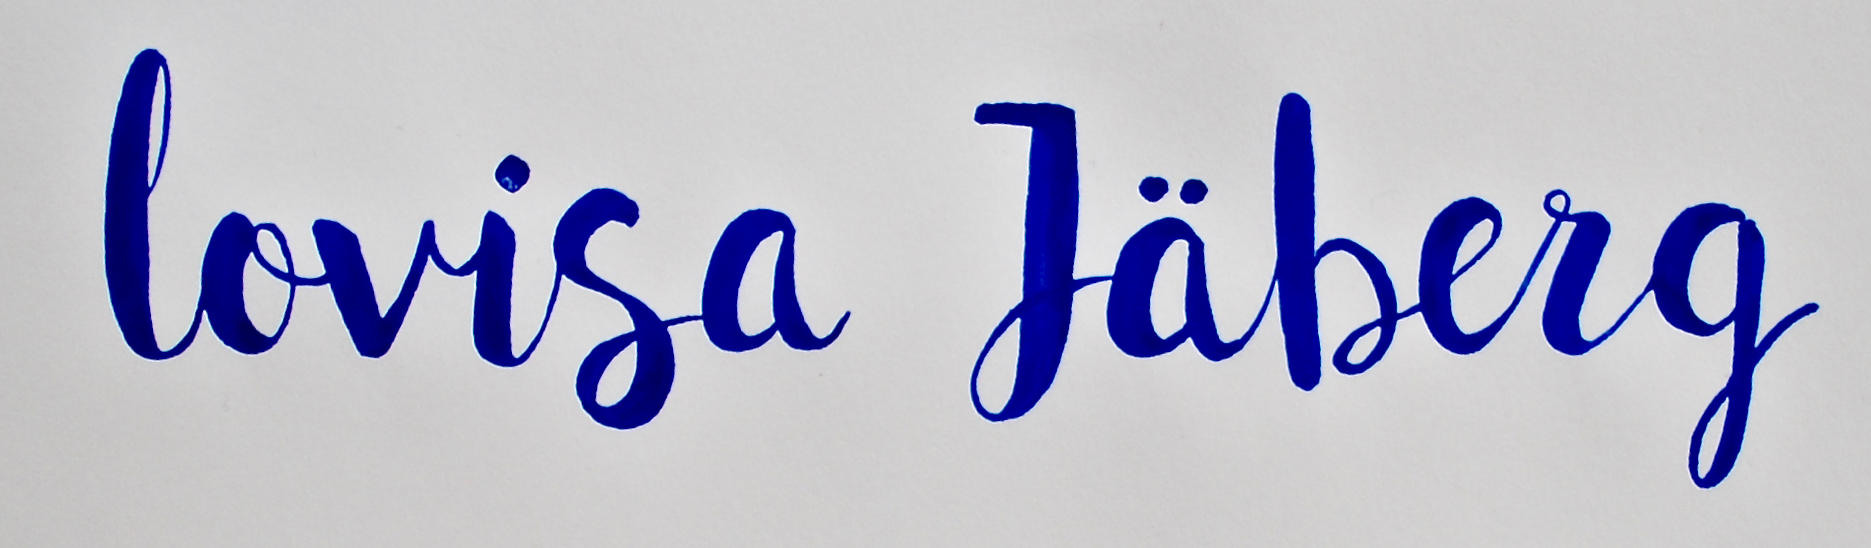 lovisa Jäberg